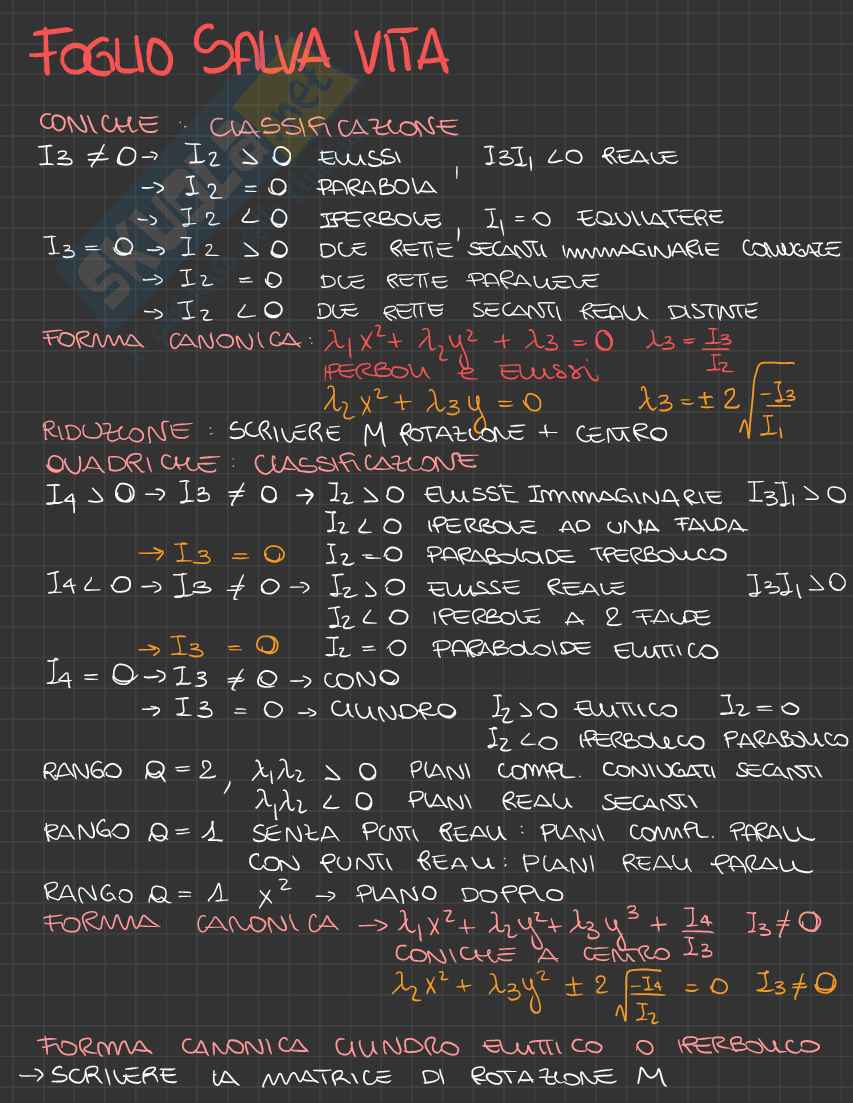 FOGLIO SALVA VITA
CONICHE : CLASSIFICAZIONE
I3 ≠ 0 → I2 > 0 ELLISSI , I3I1 < 0 REALE
→ I2 = 0 PARABOLA
→ I2 < 0 IPERBOLE , I1 = 0 EQUILATERE
I3 = 0 → I2 > 0 DUE RETTE SECANTI IMMAGINARIE CONIUGATE
→ I2 = 0 DUE RETTE PARALLELE
→ I2 < 0 DUE RETTE SECANTI REALI DISTINTE
FORMA CANONICA : λ1x² + λ2y² + λ3 = 0 λ3 = I3/I2
IPERBOLI E ELLISSI
λ2x² + λ3y = 0 λ3 = ± 2√(-I3/I1)
RIDUZIONE : SCRIVERE M ROTAZIONE + CENTRO
QUADRICHE : CLASSIFICAZIONE
I4 > 0 → I3 ≠ 0 → I2 > 0 ELLISSE IMMAGINARIE I3I1 > 0
I2 < 0 IPERBOLE AD UNA FALDA
→ I3 = 0 I2 = 0 PARABOLOIDE IPERBOLICO
I4 < 0 → I3 ≠ 0 → I2 > 0 ELLISSE REALE I3I1 > 0
I2 < 0 IPERBOLE A 2 FALDE
→ I3 = 0 I2 = 0 PARABOLOIDE ELLITTICO
I4 = 0 → I3 ≠ 0 → CONO
→ I3 = 0 → CILINDRO I2 > 0 ELLITTICO I2 = 0
I2 < 0 IPERBOLICO PARABOLICO
RANGO Q = 2 , λ1λ2 > 0 PIANI COMPL. CONIUGATI SECANTI
λ1λ2 < 0 PIANI REALI SECANTI
RANGO Q = 1 SENZA PUNTI REALI : PIANI COMPL. PARALL
CON PUNTI REALI : PIANI REALI PARALL
RANGO Q = 1 x² → PIANO DOPPIO
FORMA CANONICA → λ1x² + λ2y² + λ3y³ + I4/I3 I3 ≠ 0
CONICHE A CENTRO
λ2x² + λ3y² ± 2√(-I4/I2) = 0 I3 ≠ 0
FORMA CANONICA CILINDRO ELLITTICO O IPERBOLICO
→ SCRIVERE LA MATRICE DI ROTAZIONE M
SKUOLA.net